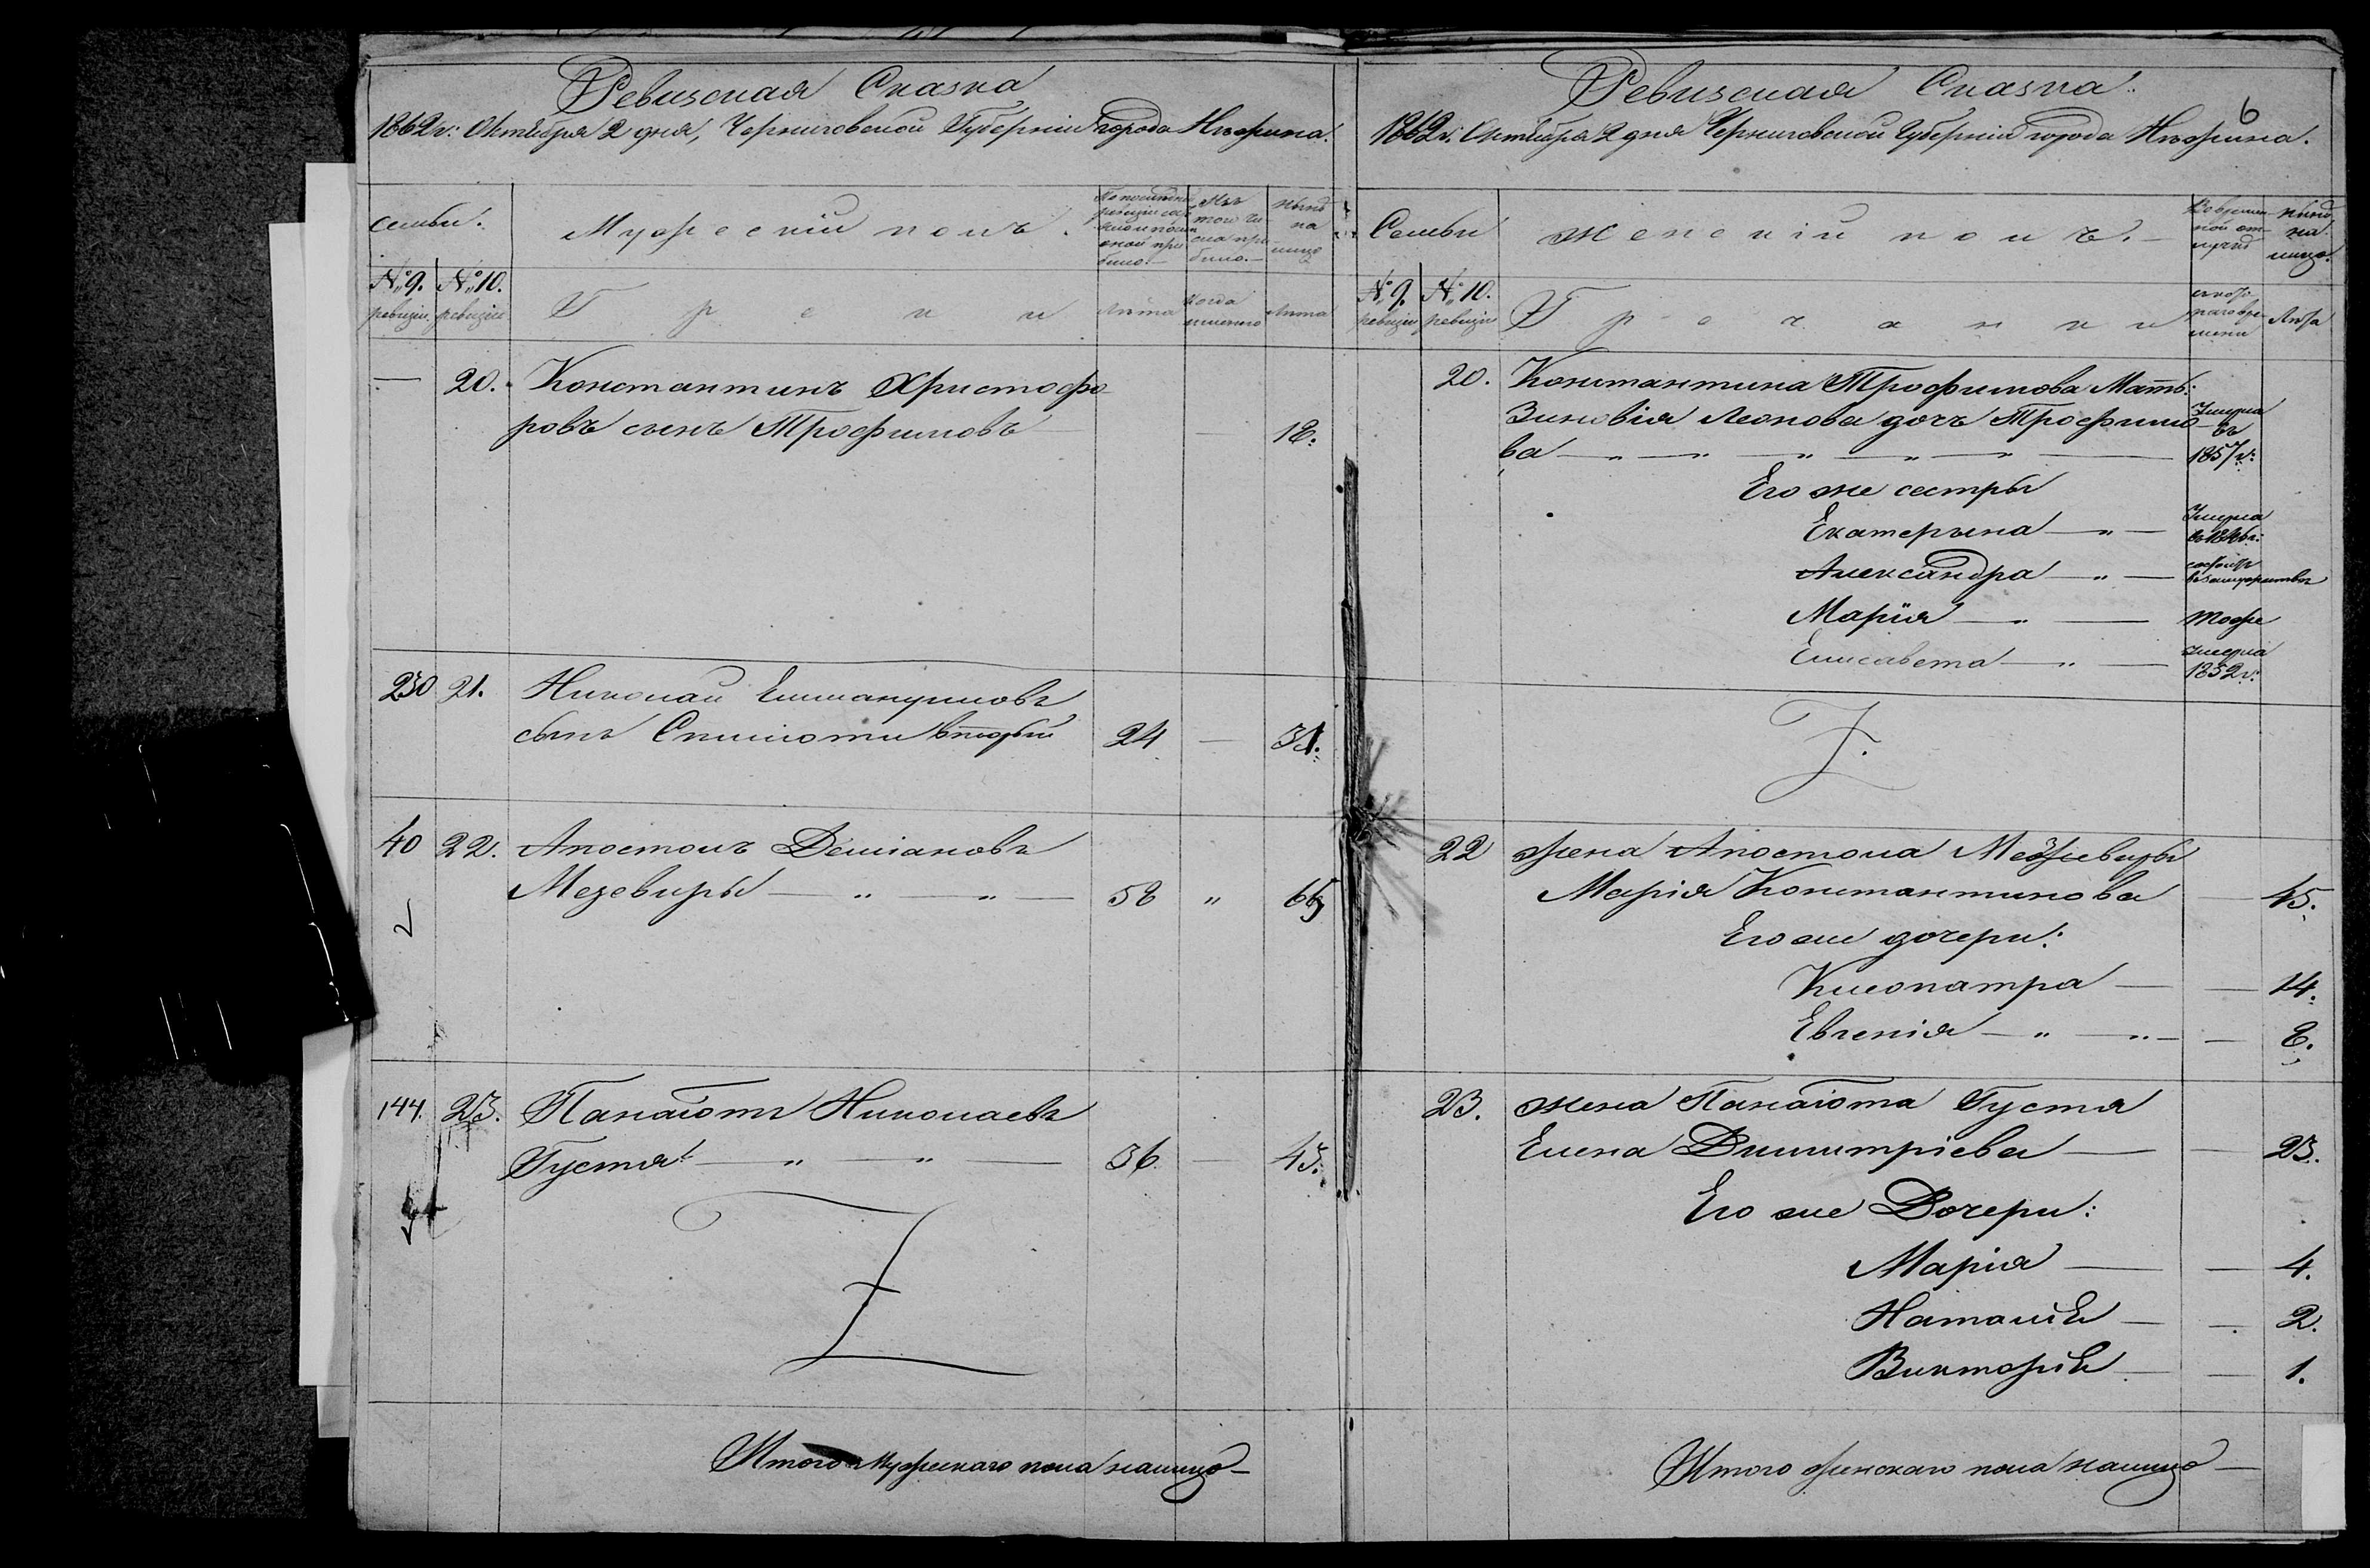 Ревизская Сказка
1862 г: Октября 2 дня, Черниговской Губернии города Нѣжина.
семьи.
Мужескій полъ.
По последней ревизіи состояло и после оной прибыло.
Изъ того числа прибыло.
нынѣ на лицо
№ 9. ревизіи
№ 10. ревизіи
Греки
Лѣта
Когда именно
Лѣта
— 20. Константинъ Христофо-
ровъ сынъ Трофимовъ — 18.
230 21. Николай Еммануиловъ
сынъ Спилioти вторый 24 — 31.
40 22. Апостолъ Деміановъ
Мезевиры — " — " — 58 " 65
144. 23. Панаіотъ Николаевъ
Густя — " — " — 36 — 43.
Итого мужескаго пола налицо —
Ревизская Сказка.
6
1862 г. Октября 2 дня Черниговской Губерніи города Нѣжина.
Семьи
Женскій полъ. —
Во временной отлучкѣ
нынѣ на лицо.
№ 9. ревизіи
№ 10. ревизіи
Гречанки
съ котораго времени
Лѣта
20. Константина Трофимова Мать:
Зиновія Леонова дочь Трофимо-
ва — " — " — " — " — " — Умерла въ 1857 г:
Его же сестры
Екатерына — " — Умерла
Александра — " — состоитъ въ замужествѣ
Марія — " — тоже
Елисавета — " — умерла 1852 г:
22 жена Апостола Межевиры
Марія Константинова — 45.
Его же дочери:
Клеопатра — — 14.
Евгенія — " — " — — 8.
23. жена Панаіота Густя
Елена Димитріева — — 23.
Его же Дочери:
Марія — — 4.
Наталія — — 2.
Викторія — — 1.
Итого женскаго пола налицо —